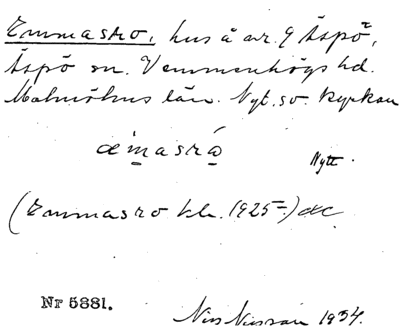 Emmasro, hus å nr. 9 Äspö,
Äspö sn. Vemmenhögs hd.
Malmöhus län. Nyt. sv. kyrkan
æmasró
Nytt.
(Emmasro kl. 1925)
Nr 5881.
Nils Nilsson 1934.